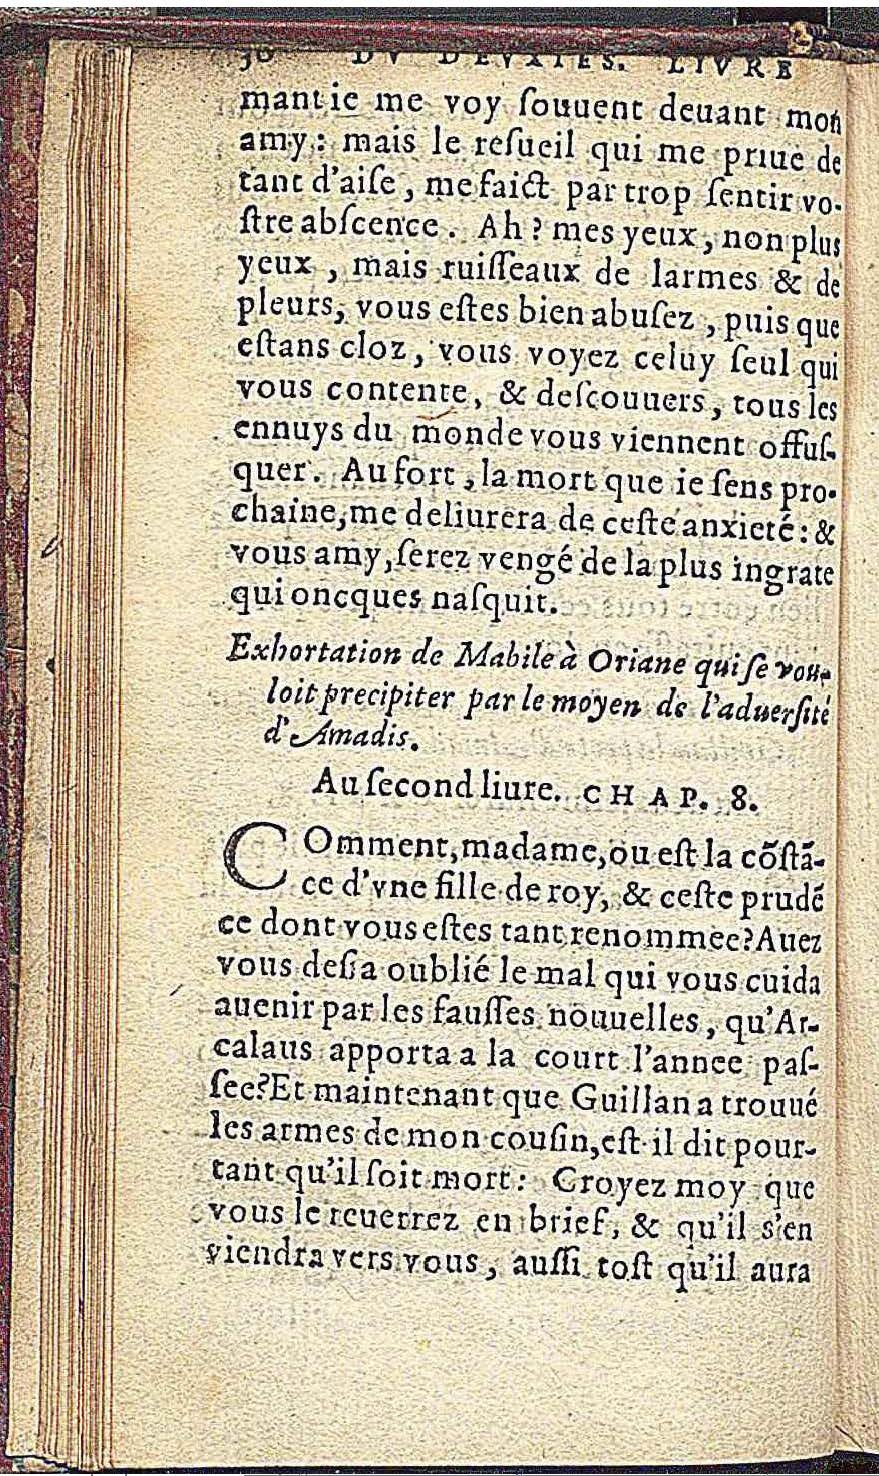 DV DEVXIES. LIVRE
mant ie me voy ſouuent deuant mon
amy : mais le reſueil qui me priue de
tant d'aiſe, me faict par trop ſentir vo-
ſtre abſcence. Ah? mes yeux, non plus
yeux, mais ruiſſeaux de larmes & de
pleurs, vous eſtes bien abuſez, puis que
eſtans cloz, vous voyez celuy ſeul qui
vous contente, & deſcouuers, tous les
ennuys du monde vous viennent offuſ-
quer. Au fort, la mort que ie ſens pro-
chaine, me deliurera de ceſte anxieté : &
vous amy, ſerez vengé de la plus ingrate
qui oncques naſquit.
Exhortation de Mabile à Oriane qui ſe vou-
loit precipiter par le moyen de l'aduerſité
d'Amadis.
Au ſecond liure. CHAP. 8.
COmment, madame, ou eſt la cõſtã-
ce d'vne fille de roy, & ceſte prudẽ
ce dont vous eſtes tant renommee? Auez
vous deſia oublié le mal qui vous cuida
auenir par les fauſſes nouuelles, qu'Ar-
calaus apporta a la court l'annee paſ-
ſee? Et maintenant que Guillan a trouué
les armes de mon couſin, eſt il dit pour-
tant qu'il ſoit mort : Croyez moy que
vous le reuerrez en brief, & qu'il s'en
viendra vers vous, auſſi toſt qu'il aura